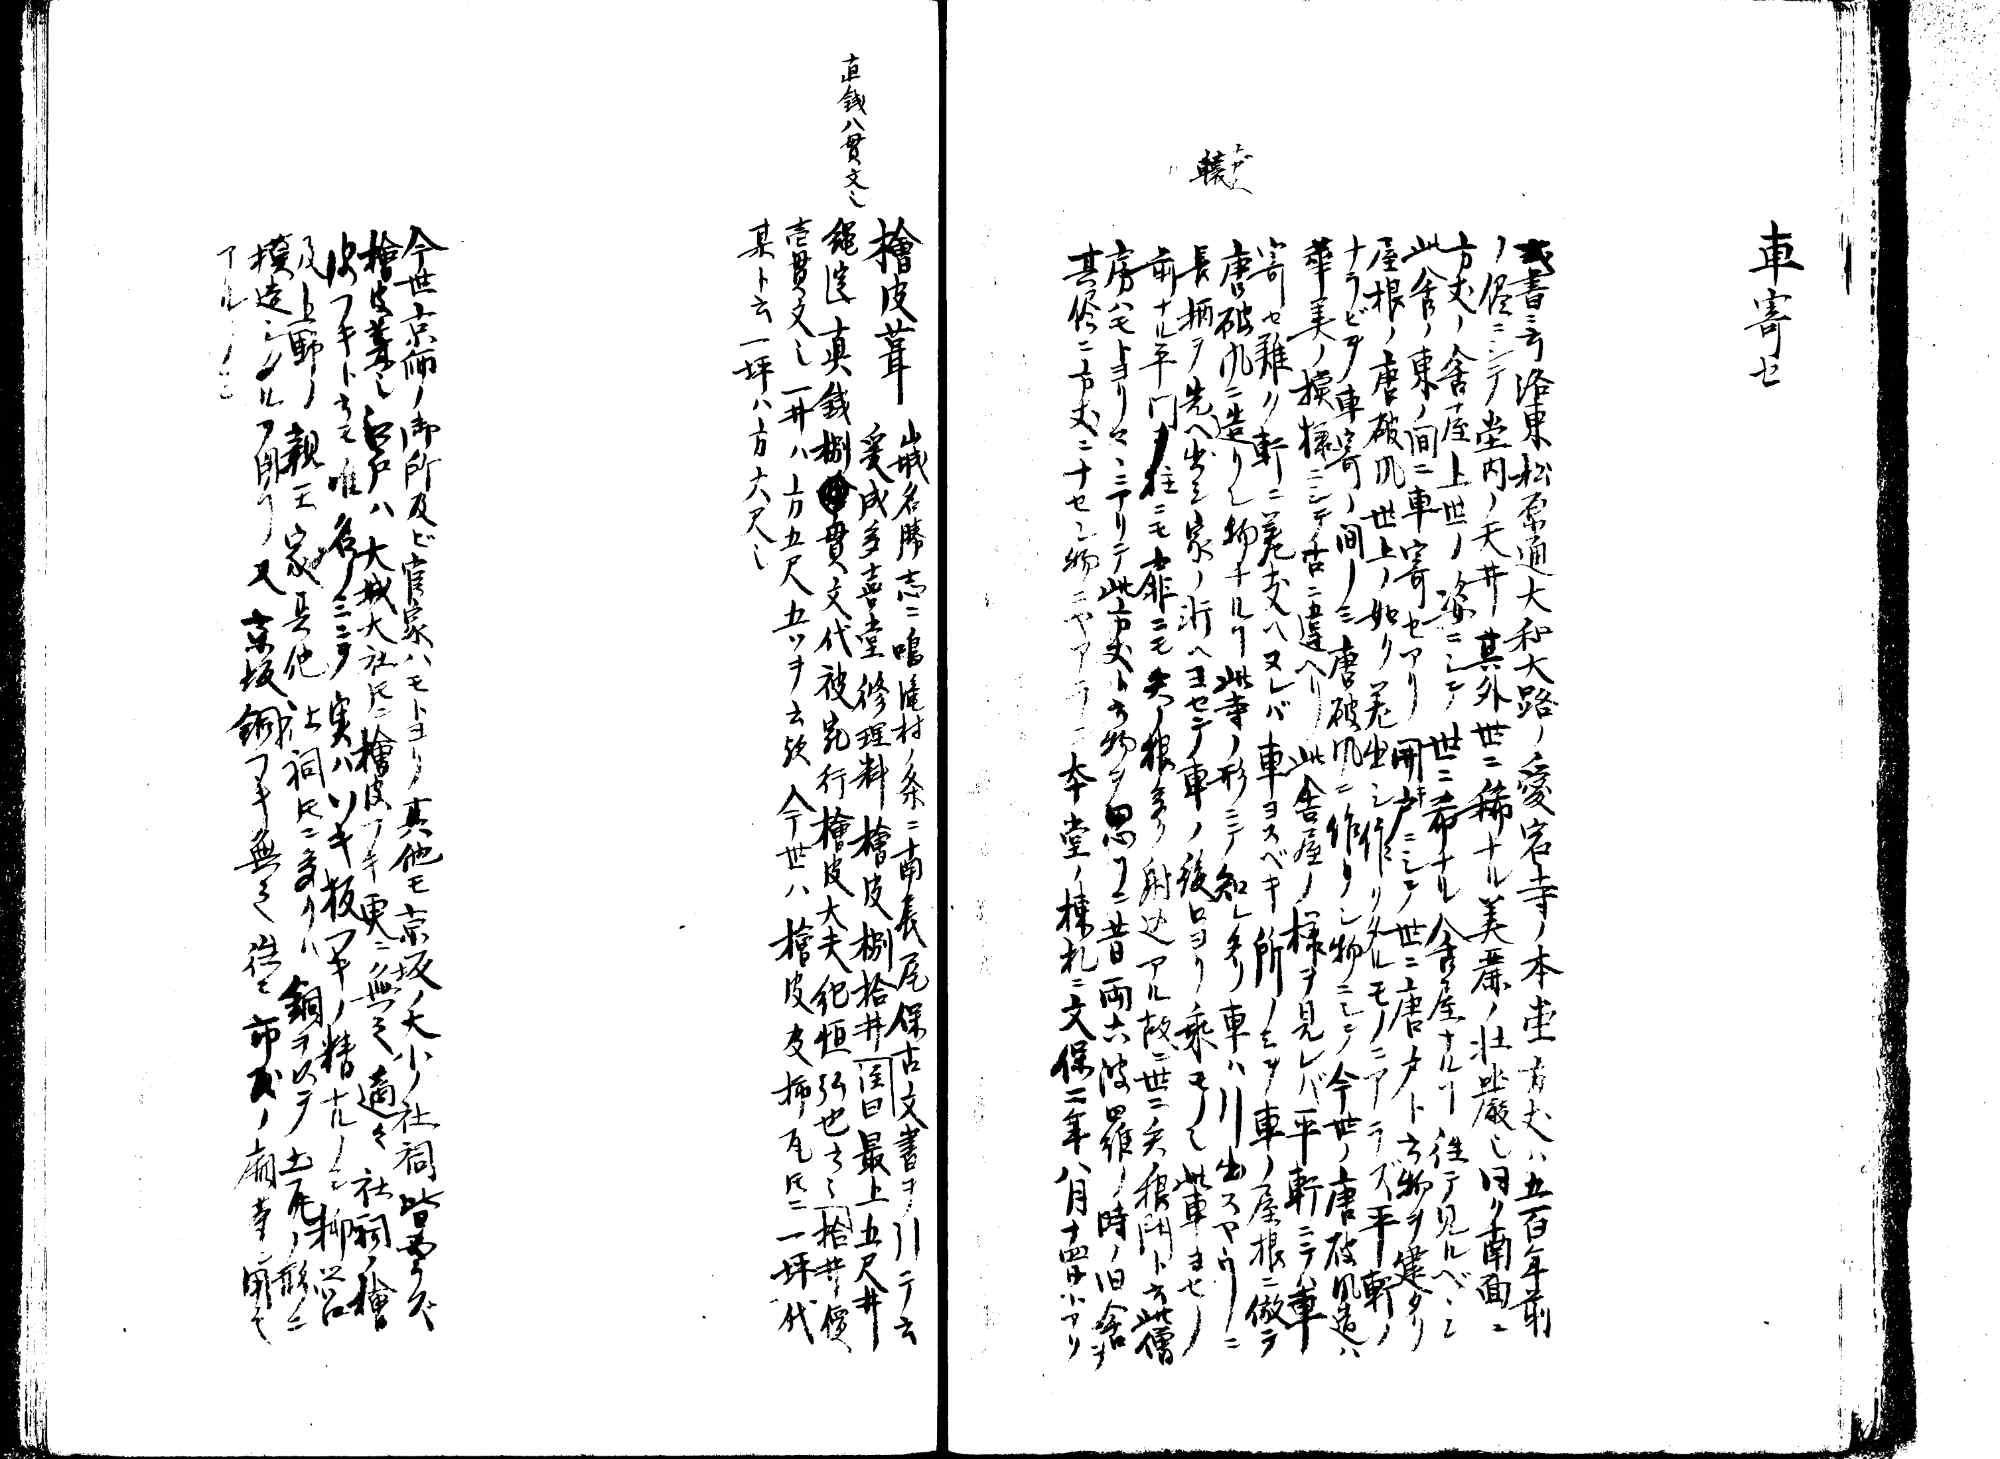 車寄セ
或書ニ云洛東松原通大和大路ノ愛宕寺ノ本堂方丈ハ五百年前
ノ侭ニシテ堂内ノ天井其外世ニ稀ナル美麗ノ壮厳也曰ク南面ニ
方丈ノ舎屋上世ノ姿ニシテ世ニ希ナル舎屋ナルヿ往テ見ルベシ
此舎ノ東ノ間ニ車寄セアリ開キ戸ニシテ世ニ唐戸ト云物ヲ建タリ
屋根ノ唐破風世上ノ如ク差出シ作リタルモノニアラズ平軒ノ
ナラビヲ車寄ノ間ノミ唐破風ニ作リシ物ニシテ今世ノ唐破風造ハ
華美ノ摸様ニシテ古ニ違ヘリ此舎屋ノ様ヲ見レバ平軒ニテハ車
寄セ難ク軒ニ差支ヘヌレバ車ヨスベキ所ノミヲ車ノ屋根ニ倣テ
唐破風ニ造リシ物ナルヿ此寺ノ形ニテ知レタリ車ハ引出スヤウニ
長柄ヲ先ヘ出シ家ノ渐ヘヨセテ車ノ後ロヨリ乗モノ也此車ヨセノ
前ナル平門ノ柱ニモ扉ニモ矢ノ根多ク射込アル故ニ世ニ矢根門ト云此僧
房ハモトヨリココニアリテ此方丈ト云物ヲ思フニ昔両六波羅ノ時ノ旧舎ヲ
其侭ニ方丈ニナセシ物ニヤアラン本堂ノ棟札ニ文保二年八月十四日トアリ
轅
檜皮葺
山城名勝志ニ鳴滝村ノ条ニ南長尾保古文書ヲ引ニテ云
爰成多喜堂修理料檜皮捌拾井 注曰最上五尺井
縄定 真銭捌貫文代被宛行檜皮大夫紀恒弘也云々 拾井ノ價
直銭八貫文也
壱貫文也一井ハ方五尺五ツヲ云歟今世ハ檜皮及柿瓦トモニ一坪代
某ト云一坪ハ方六尺也
今世京師ノ御所及ビ官家ハモトヨリ其他モ京坂ノ大小ノ社祠皆必ズ
檜皮葺也江戸ハ大城大社トモニ檜皮フキ更ニ無之適々社祠ノ檜
皮フキト云モ唯名ノミニテ実ハソキ板フキノ精ナルノミ柳営
及上野ノ親王家其他上祠トモニ多クハ銅ヲ以テ土瓦ノ形ニ
模造シタルヲ用フ又京坂銅フキ無之 往々市or ノ廟寺ニ用之
アルノミ